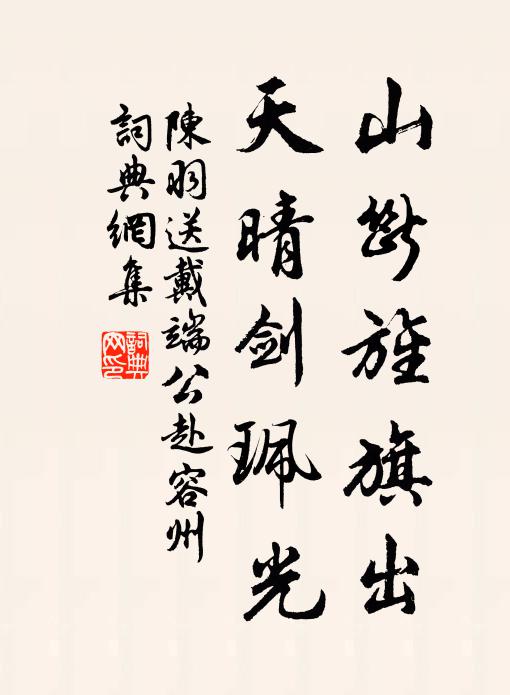 山斷旌旗出
天晴劍珮光
陳羽送戴端公赴容州
詞典網集
詞典
网印